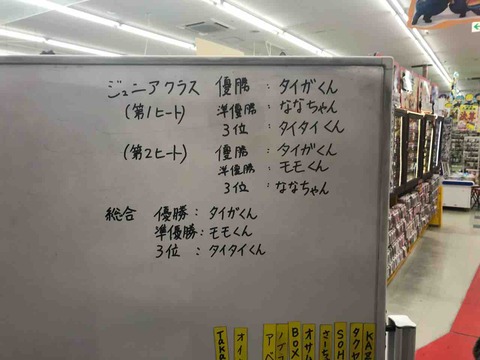 ジュニアクラス 優勝 : タイガくん
(第1ヒート) 準優勝 : ななちゃん
3位 : タイタイくん
(第2ヒート) 優勝 : タイガくん
準優勝 : モモくん
3位 : ななちゃん
総合 優勝 : タイガくん
準優勝 : モモくん
3位 : タイタイくん